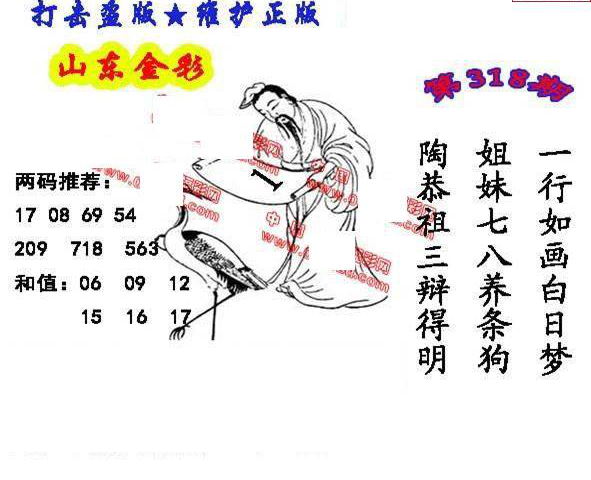 打击盗版★维护正版
山东金彩
第318期
两码推荐：
17 08 69 54
209 718 563
和值：06 09 12
15 16 17
1
一行如画白日梦
姐妹七八养条狗
陶恭祖三辩得明